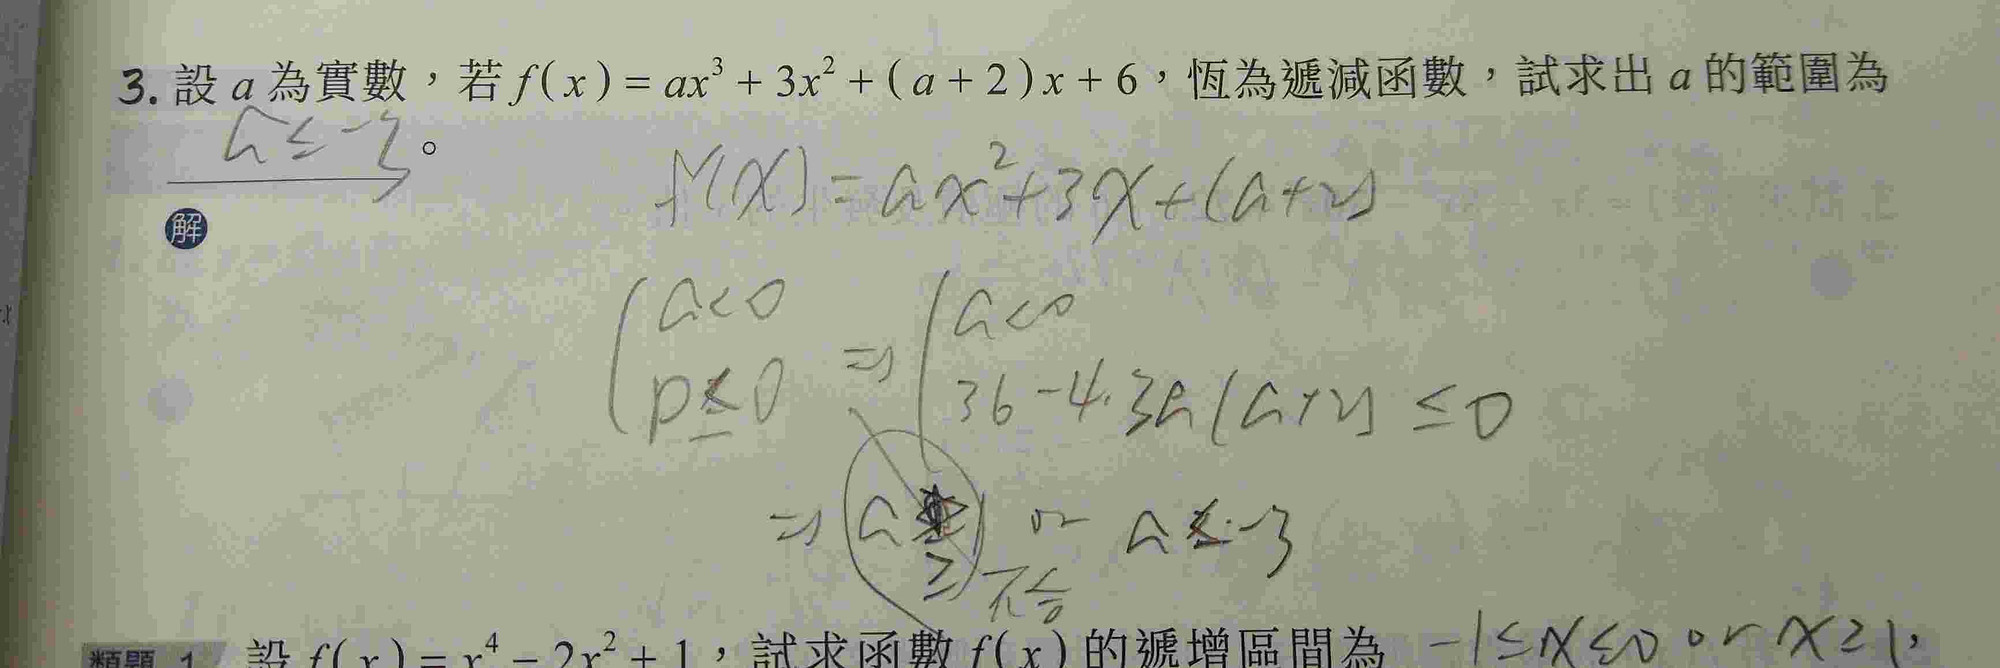 3. 設 a 為實數，若 f(x) = ax³ + 3x² + (a + 2)x + 6，恆為遞減函數，試求出 a 的範圍為
a ≤ -3。
f'(x) = ax² + 3x + (a+2)
解
a<0 a<0
D≤0 ⇒ 36-4·3a(a+2) ≤ 0
⇒ a ≥ 1 or a ≤ -3
不合
類題 1 設 f(x) = x⁴ - 2x² + 1，試求函數 f(x) 的遞增區間為 -1≤x≤0 or x≥1,